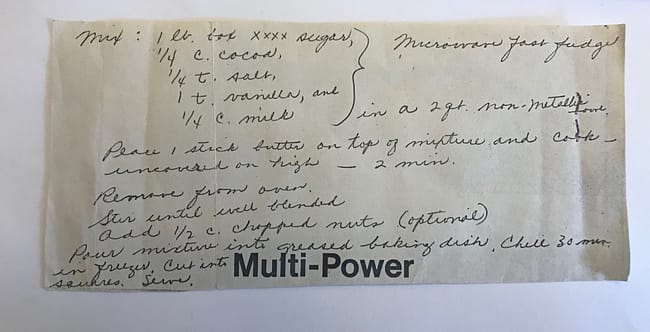 Microwave fast fudge
Mix : 1 lb. box xxxx sugar,
1/4 c. cocoa,
1/4 t. salt,
1 t. vanilla, and
1/4 c. milk } in a 2 qt. non-metallic bowl.
Place 1 stick butter on top of mixture and cook
uncovered on high — 2 min.
Remove from oven.
Stir until well blended
Add 1/2 c. chopped nuts (optional)
Pour mixture into greased baking dish. Chill 30 min.
in freezer. Cut into
squares. Serve.
Multi-Power